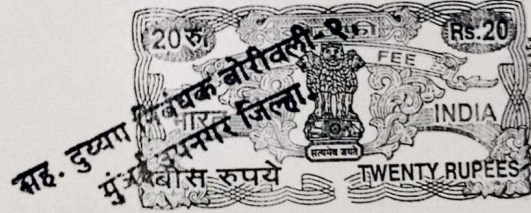 20 रु. Rs.20
FEE
भारत INDIA
सत्यमेव जयते
बीस रुपये TWENTY RUPEES
सह. दुय्यम निबंधक बोरीवली-२,
मुंबई उपनगर जिल्हा.